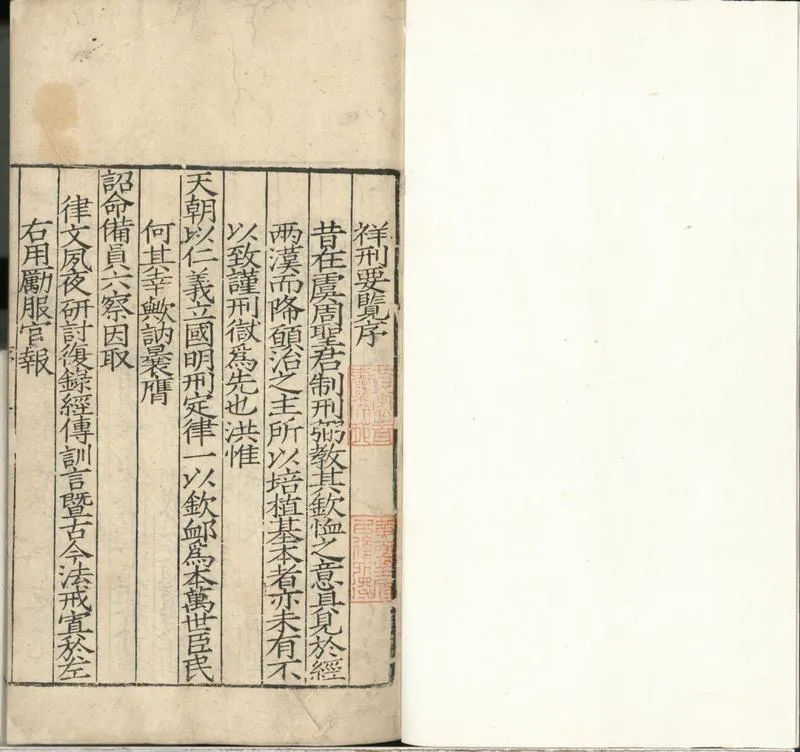 祥刑要覽序
昔在虞周聖君制刑弼教其欽恤之意具見於經
兩漢而降願治之主所以培植基本者亦未有不
以致謹刑獄爲先也洪惟
天朝以仁義立國明刑定律一以欽卹爲本萬世臣民
何其幸歟訥曩膺
詔命備員六察因取
律文夙夜研討復錄經傳訓言曁古今法戒寘於左
右用勵服官報